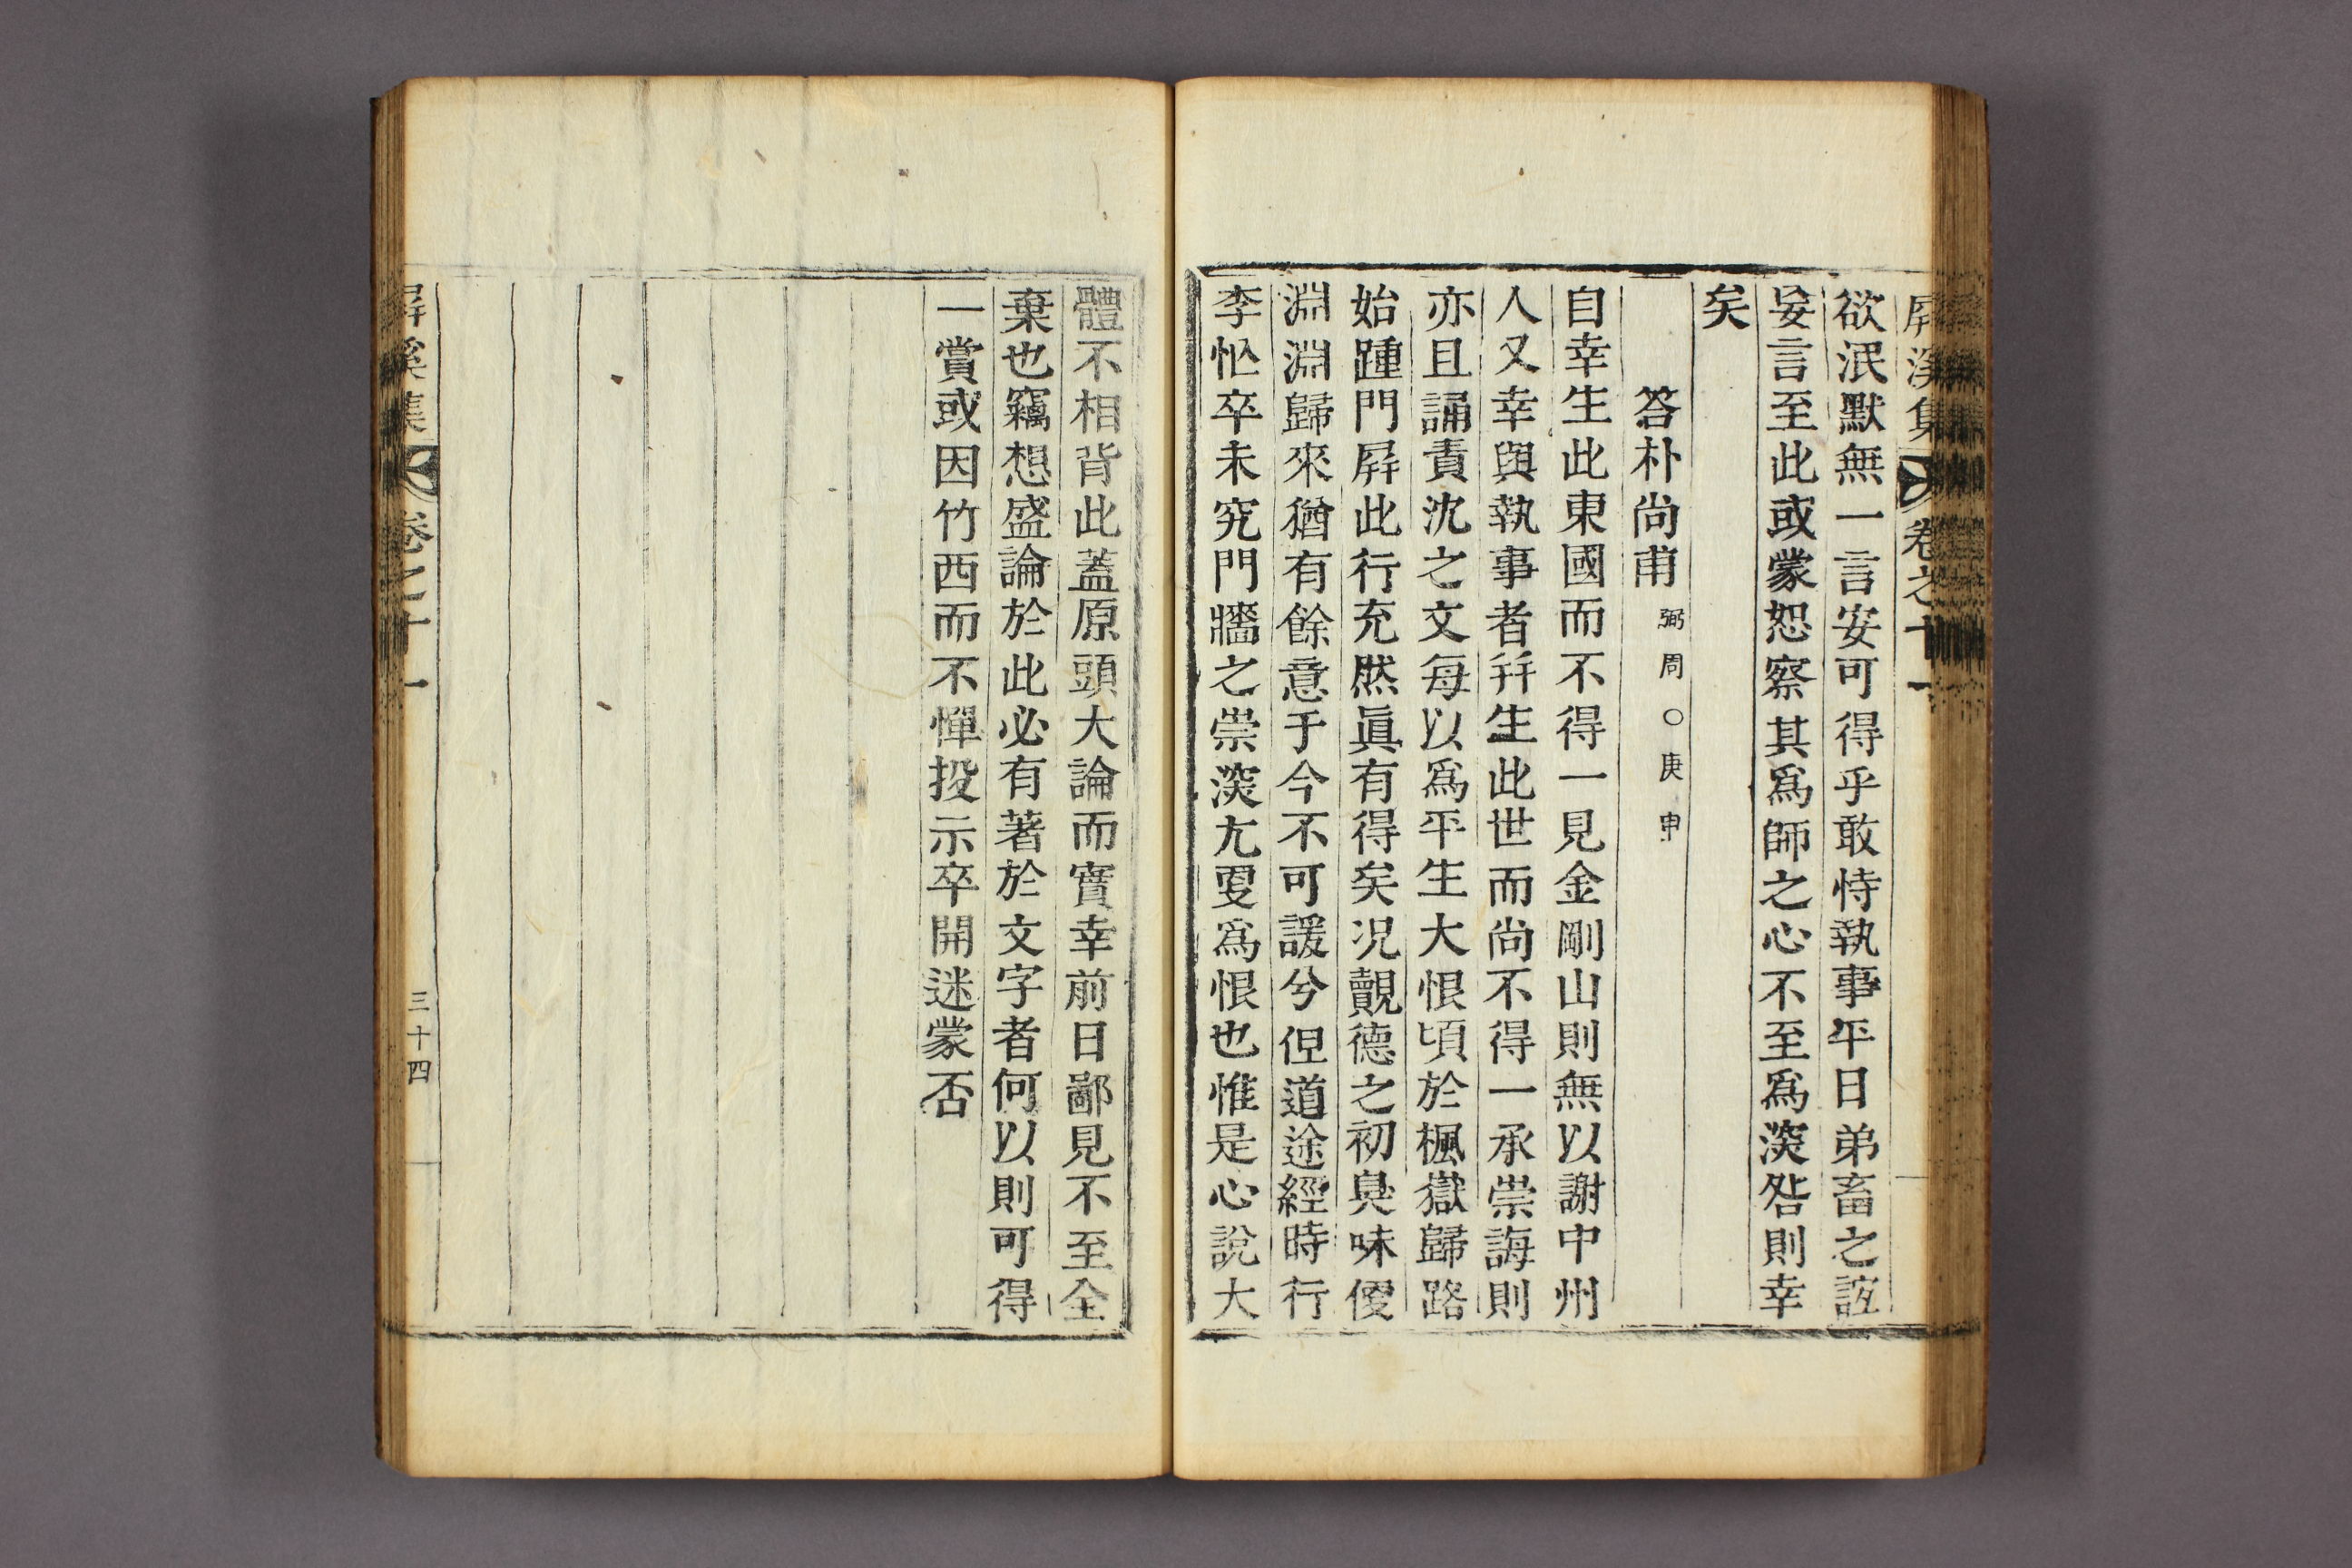 屛溪集 卷之十一
欲泯默無一言安可得乎敢恃執事平日弟畜之誼
妄言至此或蒙恕察其爲師之心不至爲深咎則幸
矣
答朴尙甫 弼周○庚申
自幸生此東國而不得一見金剛山則無以謝中州
人又幸與執事者幷生此世而尙不得一承崇誨則
亦且誦責沈之文每以爲平生大恨頃於楓嶽歸路
始踵門屛此行充然眞有得矣况覿德之初臭味便
淵淵歸來猶有餘意于今不可諼兮但道途經時行
李忙卒未究門牆之崇深尤更爲恨也惟是心說大
體不相背此蓋原頭大論而實幸前日鄙見不至全
棄也竊想盛論於此必有著於文字者何以則可得
一賞或因竹西而不憚投示卒開迷蒙否
屛溪集 卷之十一 三十四